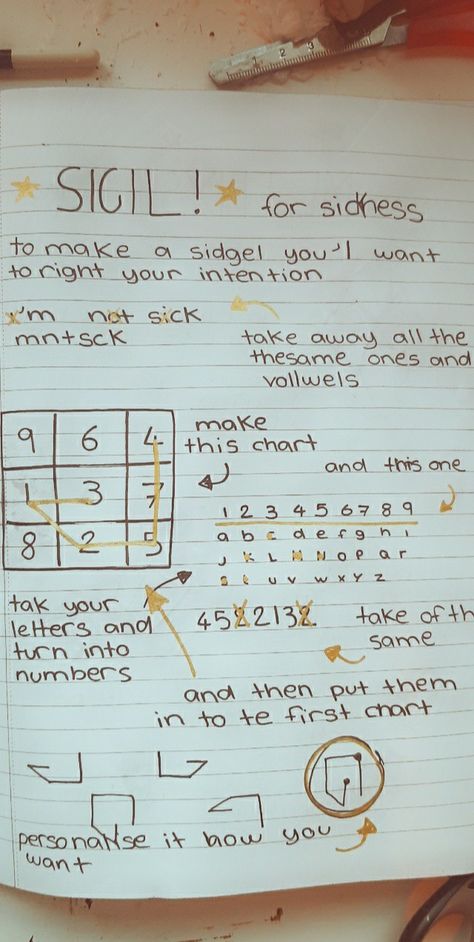 1 2 3
SIGIL! for sidness
to make a sidgel you'l want
to right your intention
I'm not sick
mntsck
take away all the
thesame ones and
vollwels
make
this chart
9 6 4
1 3 7
8 2 5
and this one
1 2 3 4 5 6 7 8 9
a b c d e f g h i
J K L M N O P Q R
S t u v w x y z
tak your
letters and
turn into
numbers
45222132
take of the
same
and then put them
in to te first chart
personalise it how you
want